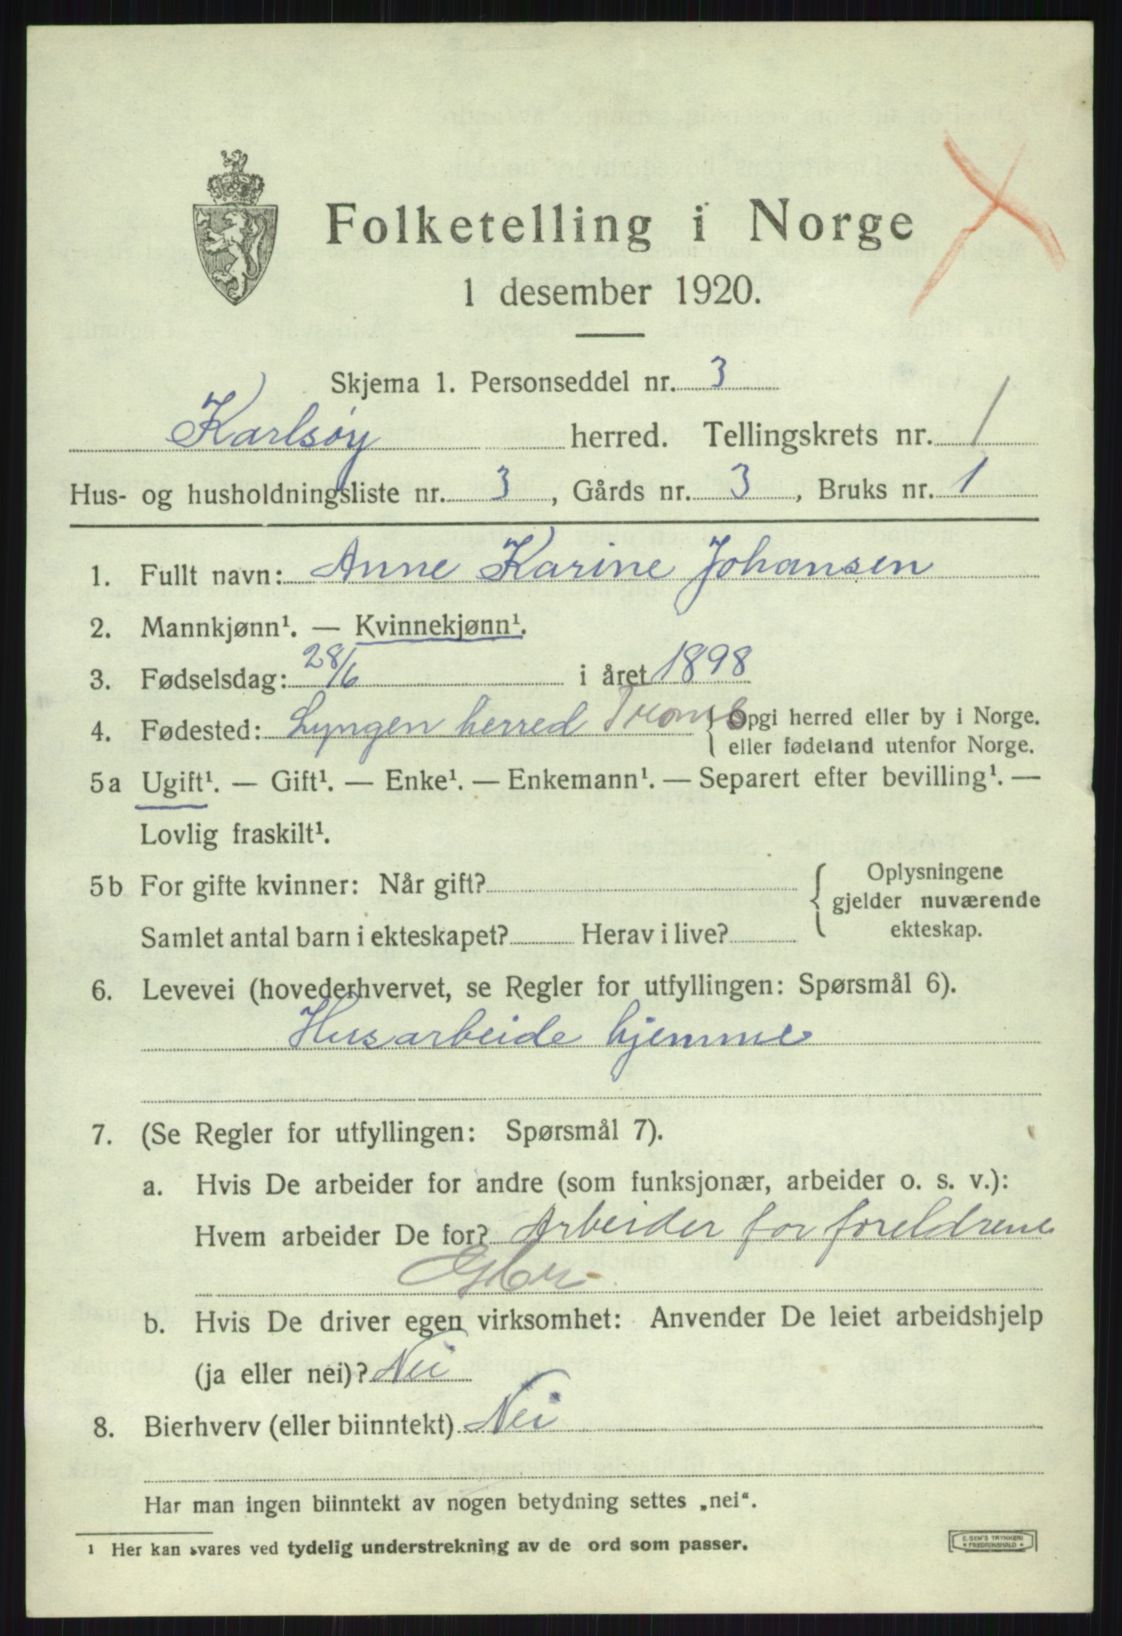 Folketelling i Norge
1 desember 1920.
Skjema 1. Personseddel nr. 3
Karlsøy herred. Tellingskrets nr. 1
Hus- og husholdningsliste nr. 3, Gårds nr. 3, Bruks nr. 1
1. Fullt navn: Anne Karine Johansen
2. Mannkjønn¹. — Kvinnekjønn¹.
3. Fødselsdag: 28/6 i året 1898
4. Fødested: Lyngen herred Troms { Opgi herred eller by i Norge.
eller fødeland utenfor Norge.
5a Ugift¹. — Gift¹. — Enke¹. — Enkemann¹. — Separert efter bevilling¹. —
Lovlig fraskilt¹.
5b For gifte kvinner: Når gift? { Oplysningene
gjelder nuværende
Samlet antal barn i ekteskapet? Herav i live? ekteskap.
6. Levevei (hovederhvervet, se Regler for utfyllingen: Spørsmål 6).
Husarbeide hjemme
7. (Se Regler for utfyllingen: Spørsmål 7).
a. Hvis De arbeider for andre (som funksjonær, arbeider o. s. v.):
Hvem arbeider De for? Arbeider for foreldrene
b. Hvis De driver egen virksomhet: Anvender De leiet arbeidshjelp
(ja eller nei)? Nei
8. Bierhverv (eller biinntekt) Nei
Har man ingen biinntekt av nogen betydning settes „nei“.
¹ Her kan svares ved tydelig understrekning av de ord som passer.